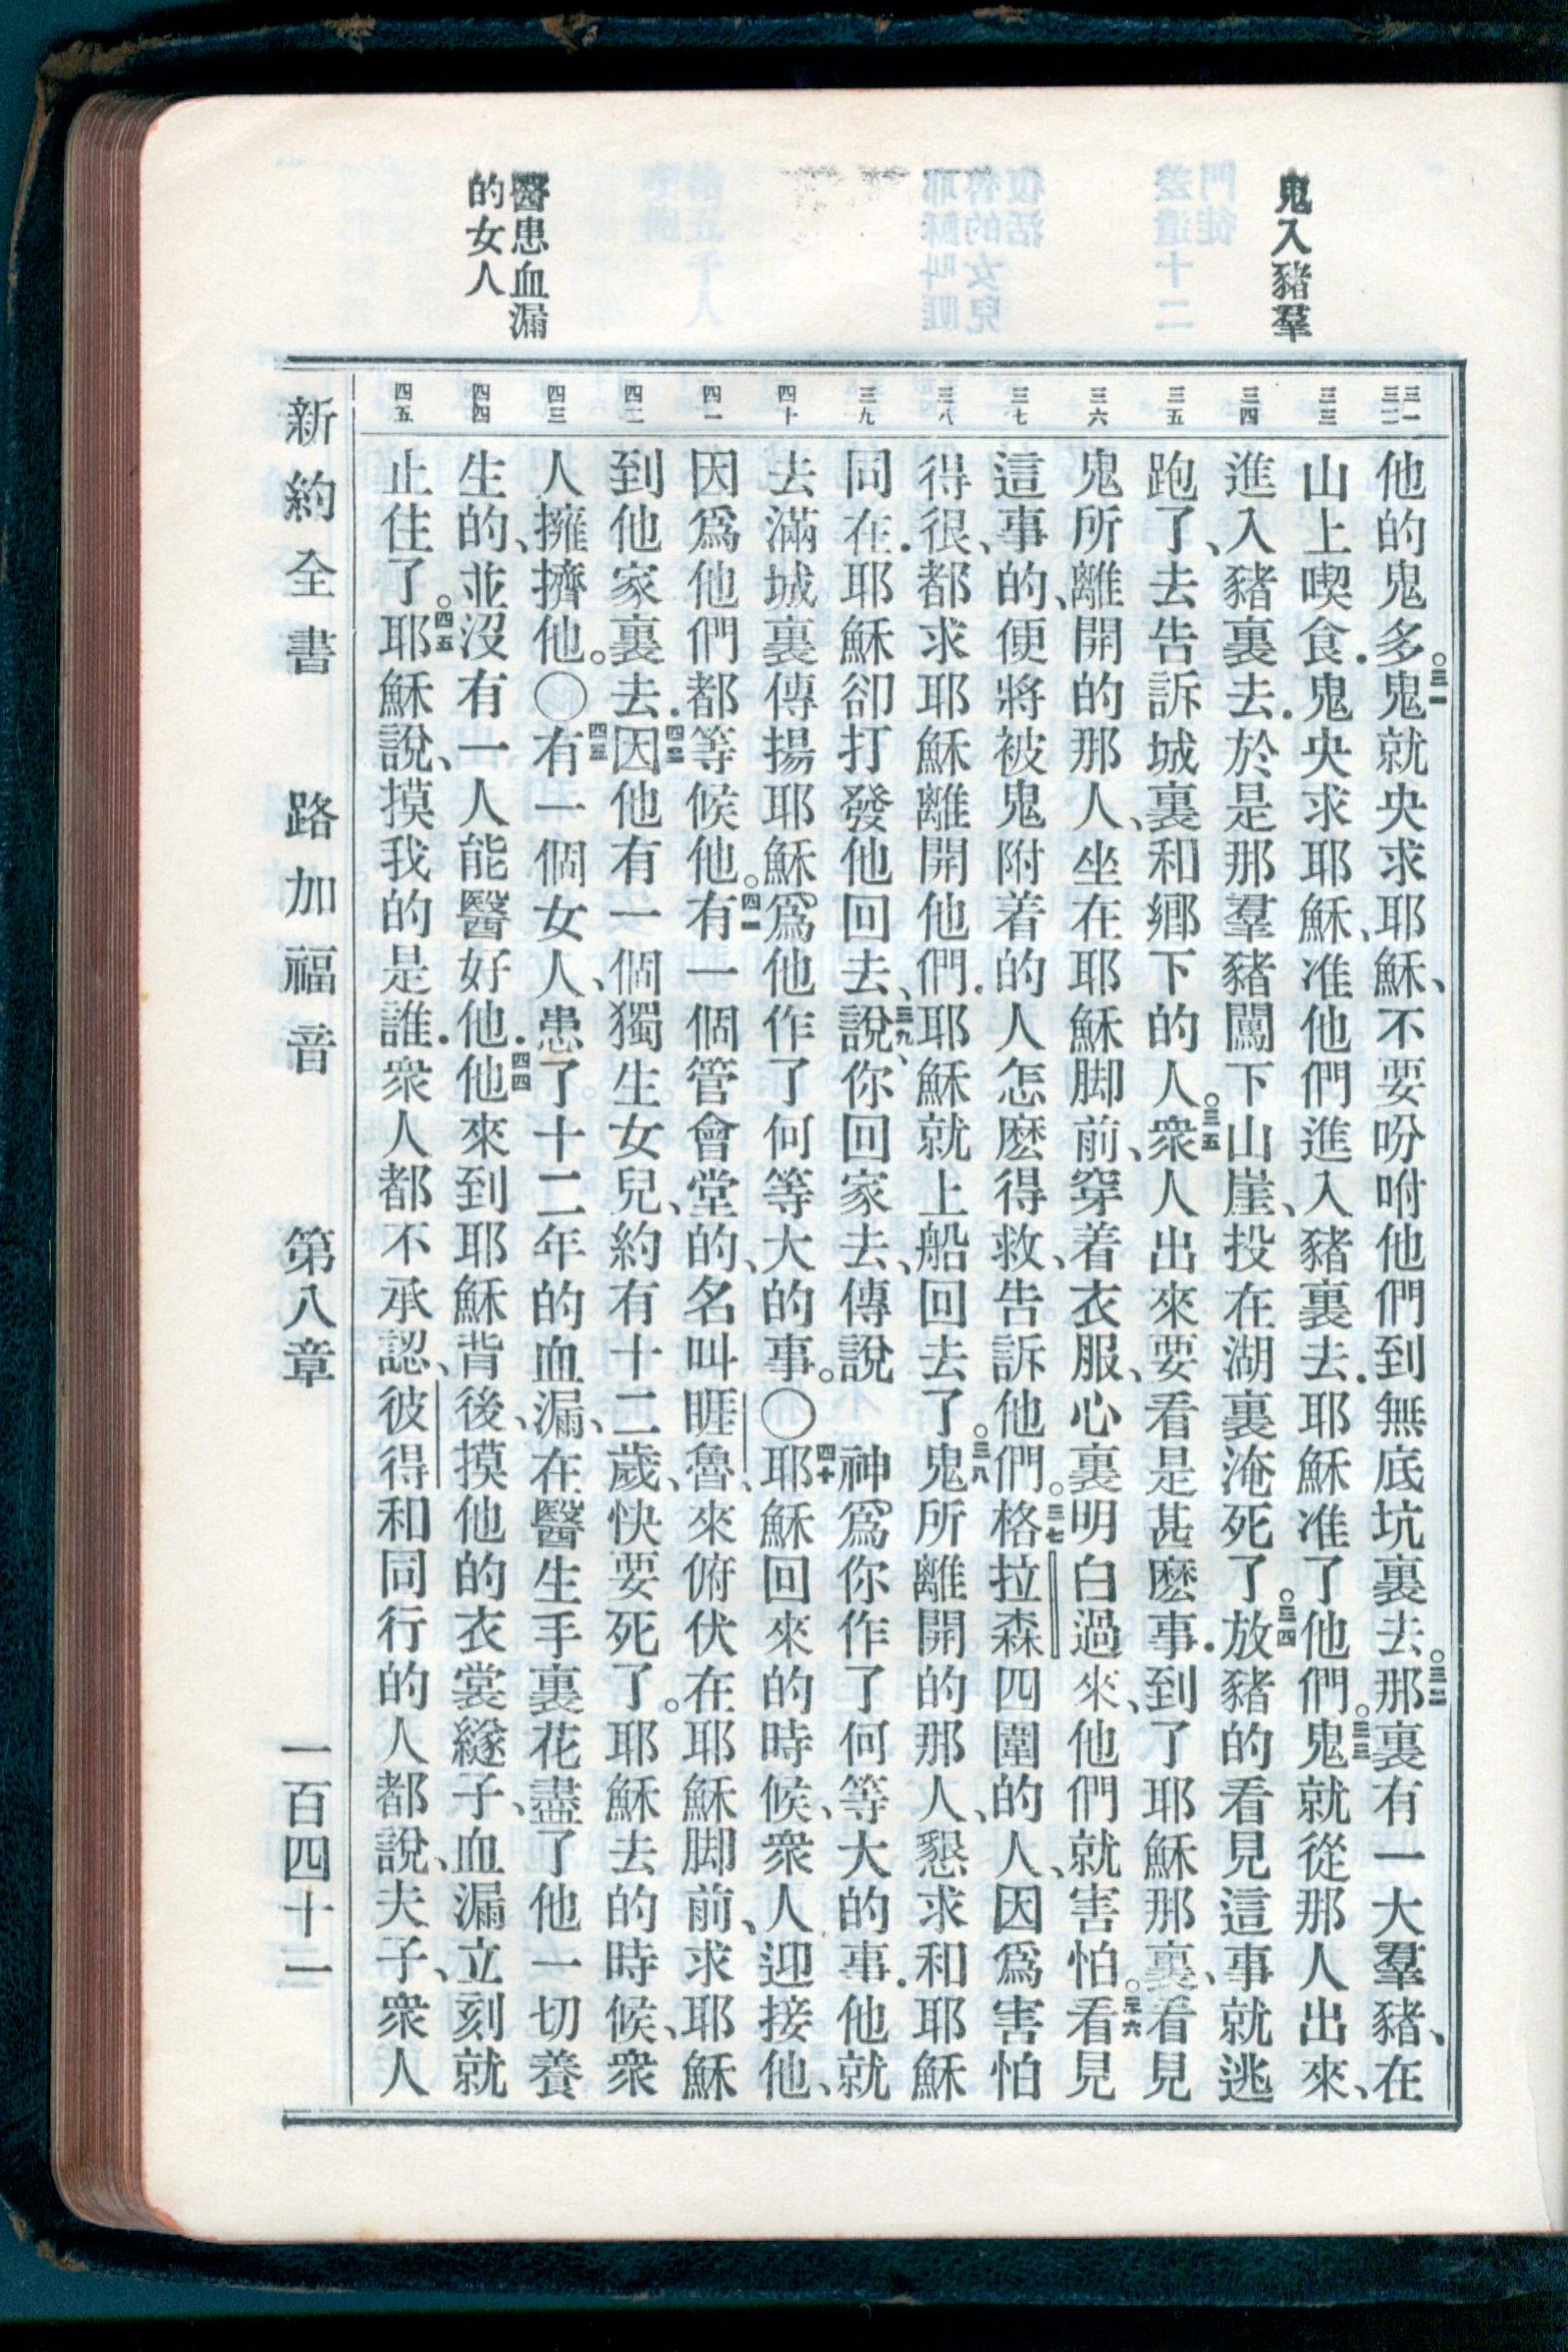 鬼入豬羣
醫患血漏
的女人
三一
三二
三三
三四
三五
三六
三七
三八
三九
四十
四一
四二
四三
四四
四五
他的鬼多。三一鬼就央求耶穌、不要吩咐他們到無底坑裏去。三二那裏有一大羣豬、在
山上喫食．鬼央求耶穌、准他們進入豬裏去．耶穌准了他們。三三鬼就從那人出來、
進入豬裏去．於是那羣豬闖下山崖、投在湖裏淹死了。三四放豬的看見這事就逃
跑了、去告訴城裏和鄉下的人。三五衆人出來要看是甚麽事．到了耶穌那裏、看見
鬼所離開的那人、坐在耶穌脚前、穿着衣服、心裏明白過來、他們就害怕。三六看見
這事的、便將被鬼附着的人怎麽得救、告訴他們。三七格拉森四圍的人、因爲害怕
得很、都求耶穌離開他們．耶穌就上船回去了。三八鬼所離開的那人、懇求和耶穌
同在．耶穌卻打發他回去、三九說、你回家去、傳說　神爲你作了何等大的事．他就
去滿城裏傳揚耶穌爲他作了何等大的事。〇四十耶穌回來的時候、衆人迎接他、
因爲他們都等候他。四一有一個管會堂的、名叫睚魯、來俯伏在耶穌脚前、求耶穌
到他家裏去．四二因他有一個獨生女兒、約有十二歲、快要死了。耶穌去的時候、衆
人擁擠他。〇四三有一個女人、患了十二年的血漏、在醫生手裏花盡了他一切養
生的、並沒有一人能醫好他．四四他來到耶穌背後、摸他的衣裳繸子、血漏立刻就
止住了。四五耶穌說、摸我的是誰．衆人都不承認、彼得和同行的人都說、夫子、衆人
新約全書　路加福音　第八章　一百四十二